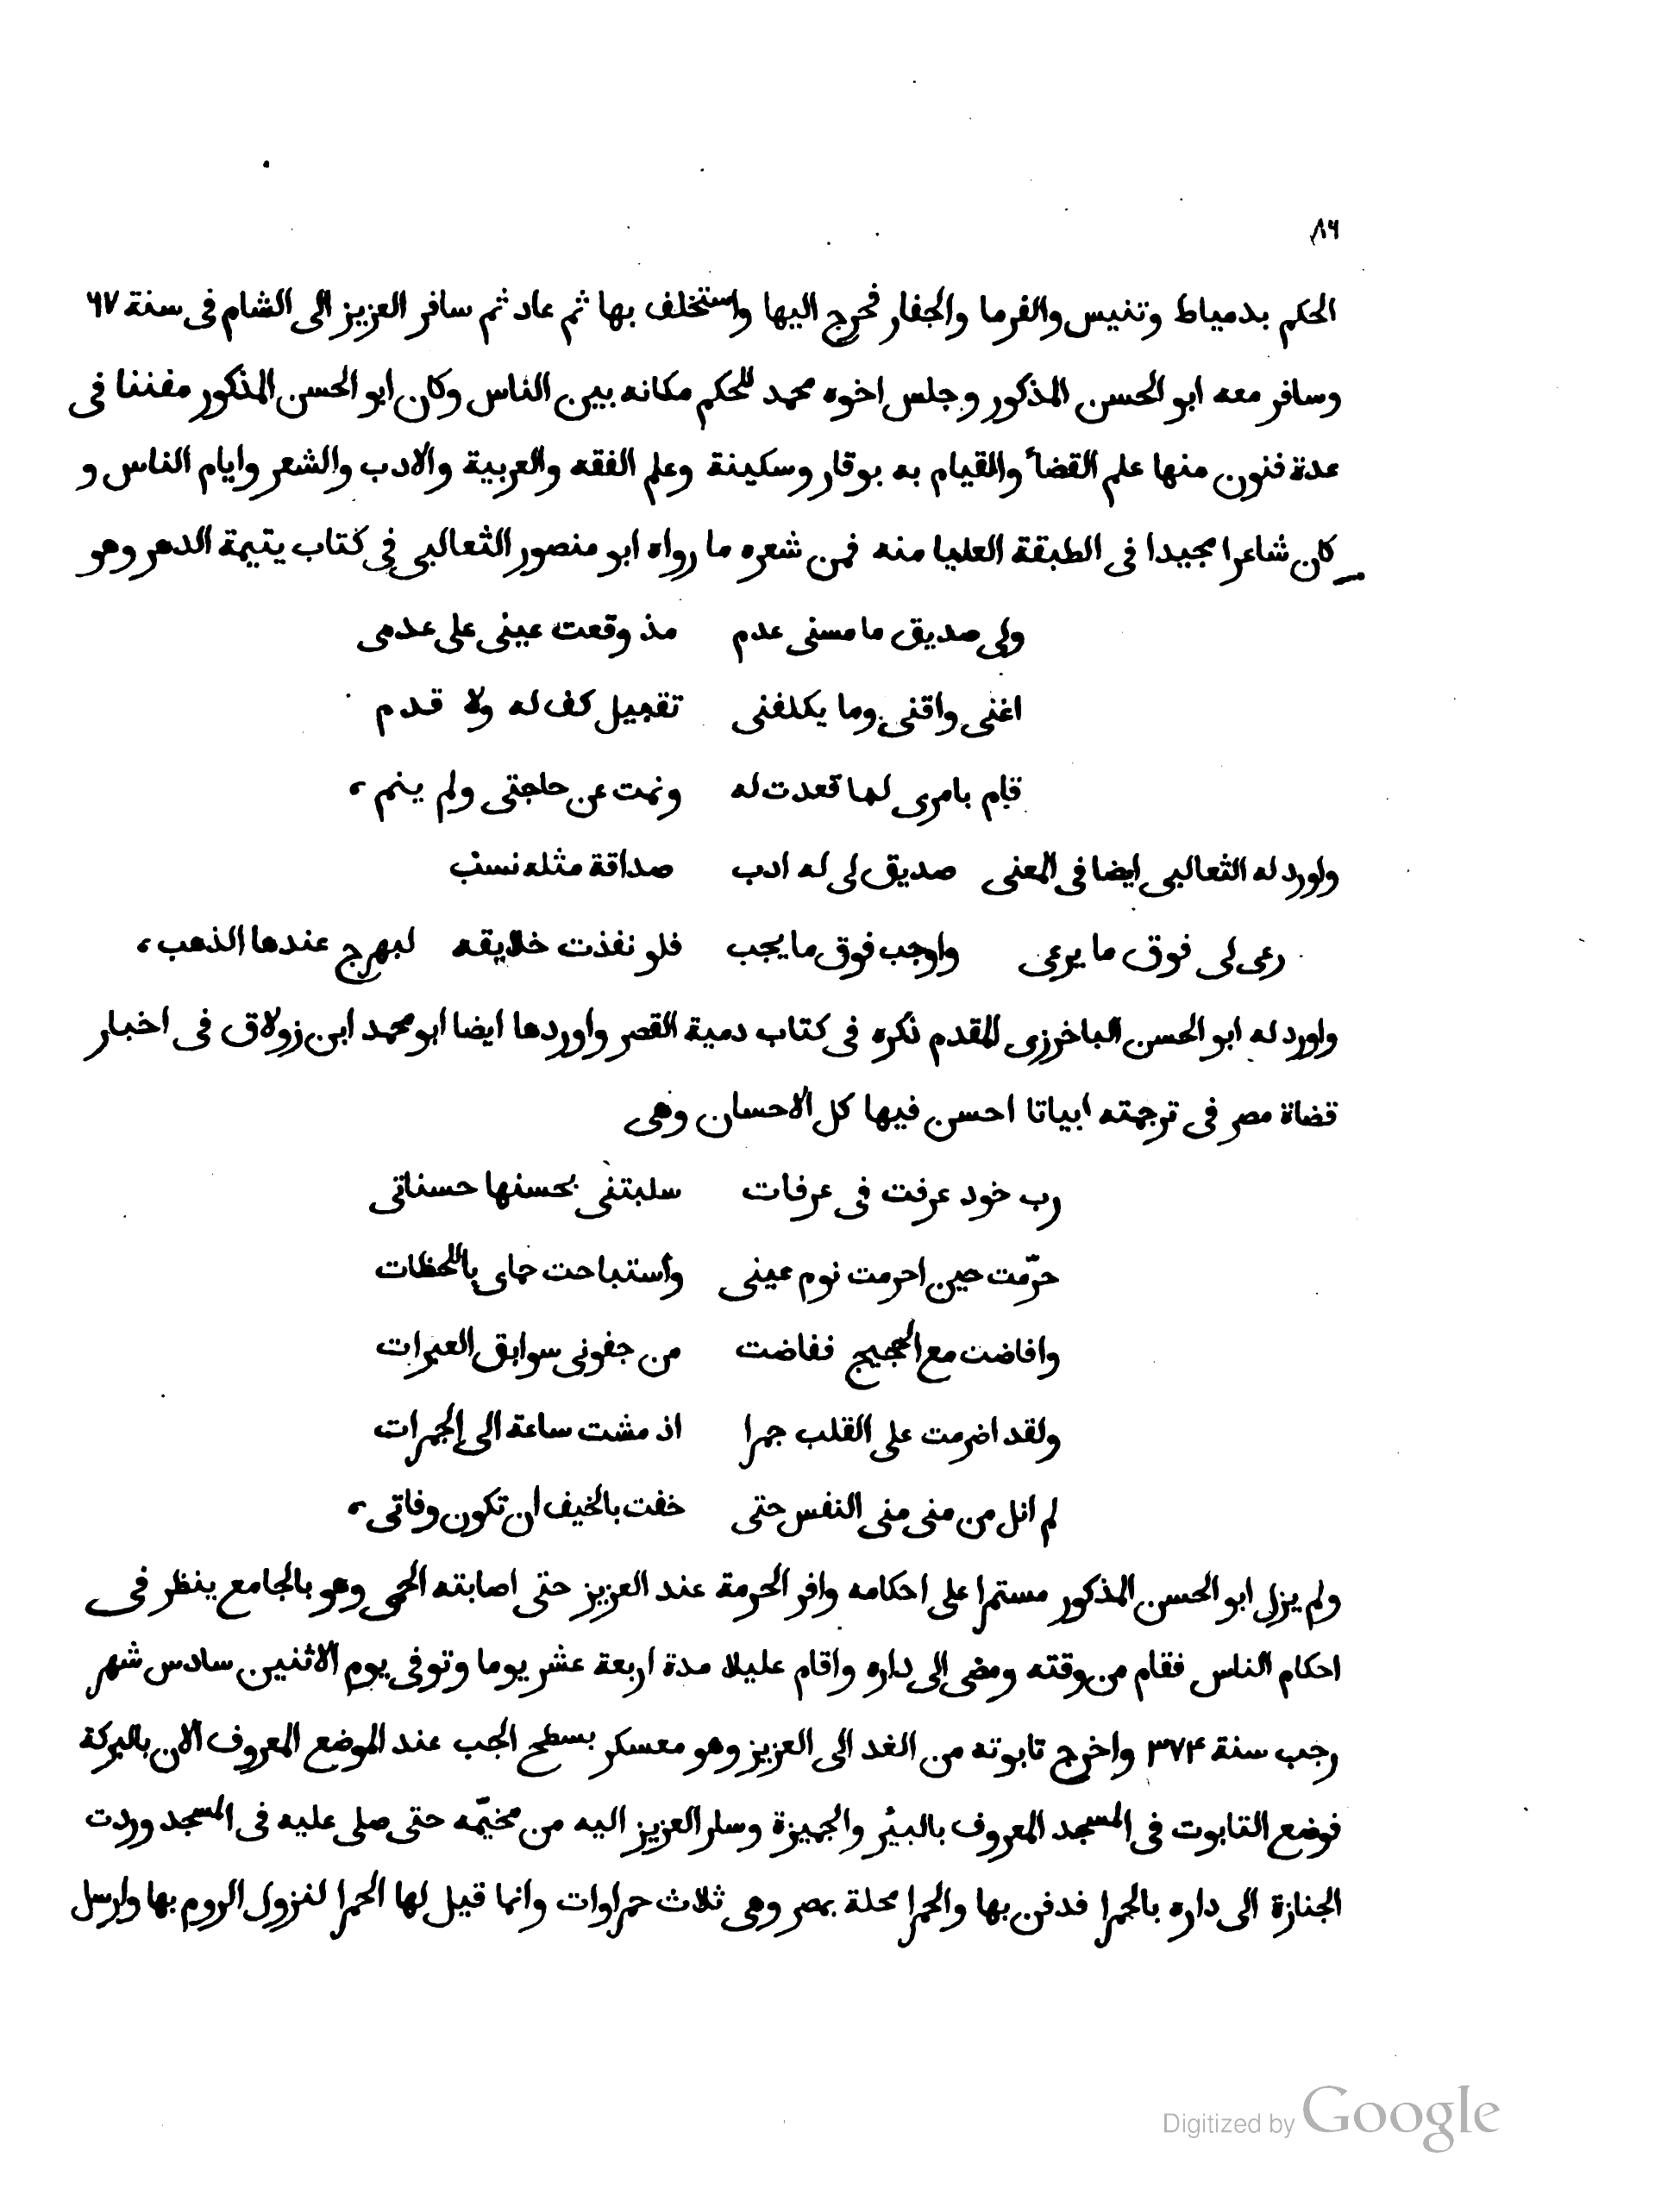 ٨٦
الحكم بدمياط وتنيس والفرما والجفار فخرج اليها واستخلف بها ثم عاد ثم سافر العزيز الى الشام فى سنة ٦٧
وسافر معه ابو الحسن المذكور وجلس اخوه محمد للحكم مكانه بين الناس وكان ابو الحسن المذكور مفننا فى
عدة فنون منها علم القضاء والقيام به بوقار وسكينة وعلم الفقه والعربية والادب والشعر وايام الناس و
كان شاعرا مجيدا فى الطبقة العليا منه فمن شعره ما رواه ابو منصور الثعالبى فى كتاب يتيمة الدهر وهو
ولى صديق ما مسنى عدم مذ وقعت عينى على عدمى
اغنى واقنى وما يكلفنى تقبيل كف له ولا قدم
قام بامرى لما قعدت له ونمت عن حاجتى ولم ينم،
واورد له الثعالبى ايضا فى المعنى صديق لى له ادب صداقة مثله نسب
رعى لى فوق ما يرعى واوجب فوق ما يجب فلو نفذت خلايقه لبهرج عندها الذهب،
واورد له ابو الحسن الباخرزى المقدم ذكره فى كتاب دمية القصر واوردها ايضا ابو محمد ابن زولاق فى اخبار
قضاة مصر فى ترجمته ابياتا احسن فيها كل الاحسان وهى
رب خود عرفت فى عرفات سلبتنى بحسنها حسناتى
حرّمت حين احرمت نوم عينى واستباحت حماى باللحظات
وافاضت مع الحجيج ففاضت من جفونى سوابق العبرات
ولقد اضرمت على القلب جمرا اذ مشت ساعة الى الجمرات
لم انل من منى منى النفس حتى خفت بالخيف ان تكون وفاتى،
ولم يزل ابو الحسن المذكور مستمرا على احكامه وافر الحرمة عند العزيز حتى اصابته الحمى وهو بالجامع ينظر فى
احكام الناس فقام من وقته ومضى الى داره واقام عليلا مدة اربعة عشر يوما وتوفى يوم الاثنين سادس شهر
رجب سنة ٣٧۴ واخرج تابوته من الغد الى العزيز وهو معسكر بسطح الجب عند الموضع المعروف الان بالبركة
فوضع التابوت فى المسجد المعروف بالبئر والجميزة وسار العزيز اليه من مخيّمه حتى صلى عليه فى المسجد وردت
الجنازة الى داره بالحمرا فدفن بها والحمرا محلة بمصر وهى ثلاث حمراوات وانما قيل لها الحمرا لنزول الروم بها وارسل
Digitized by Google